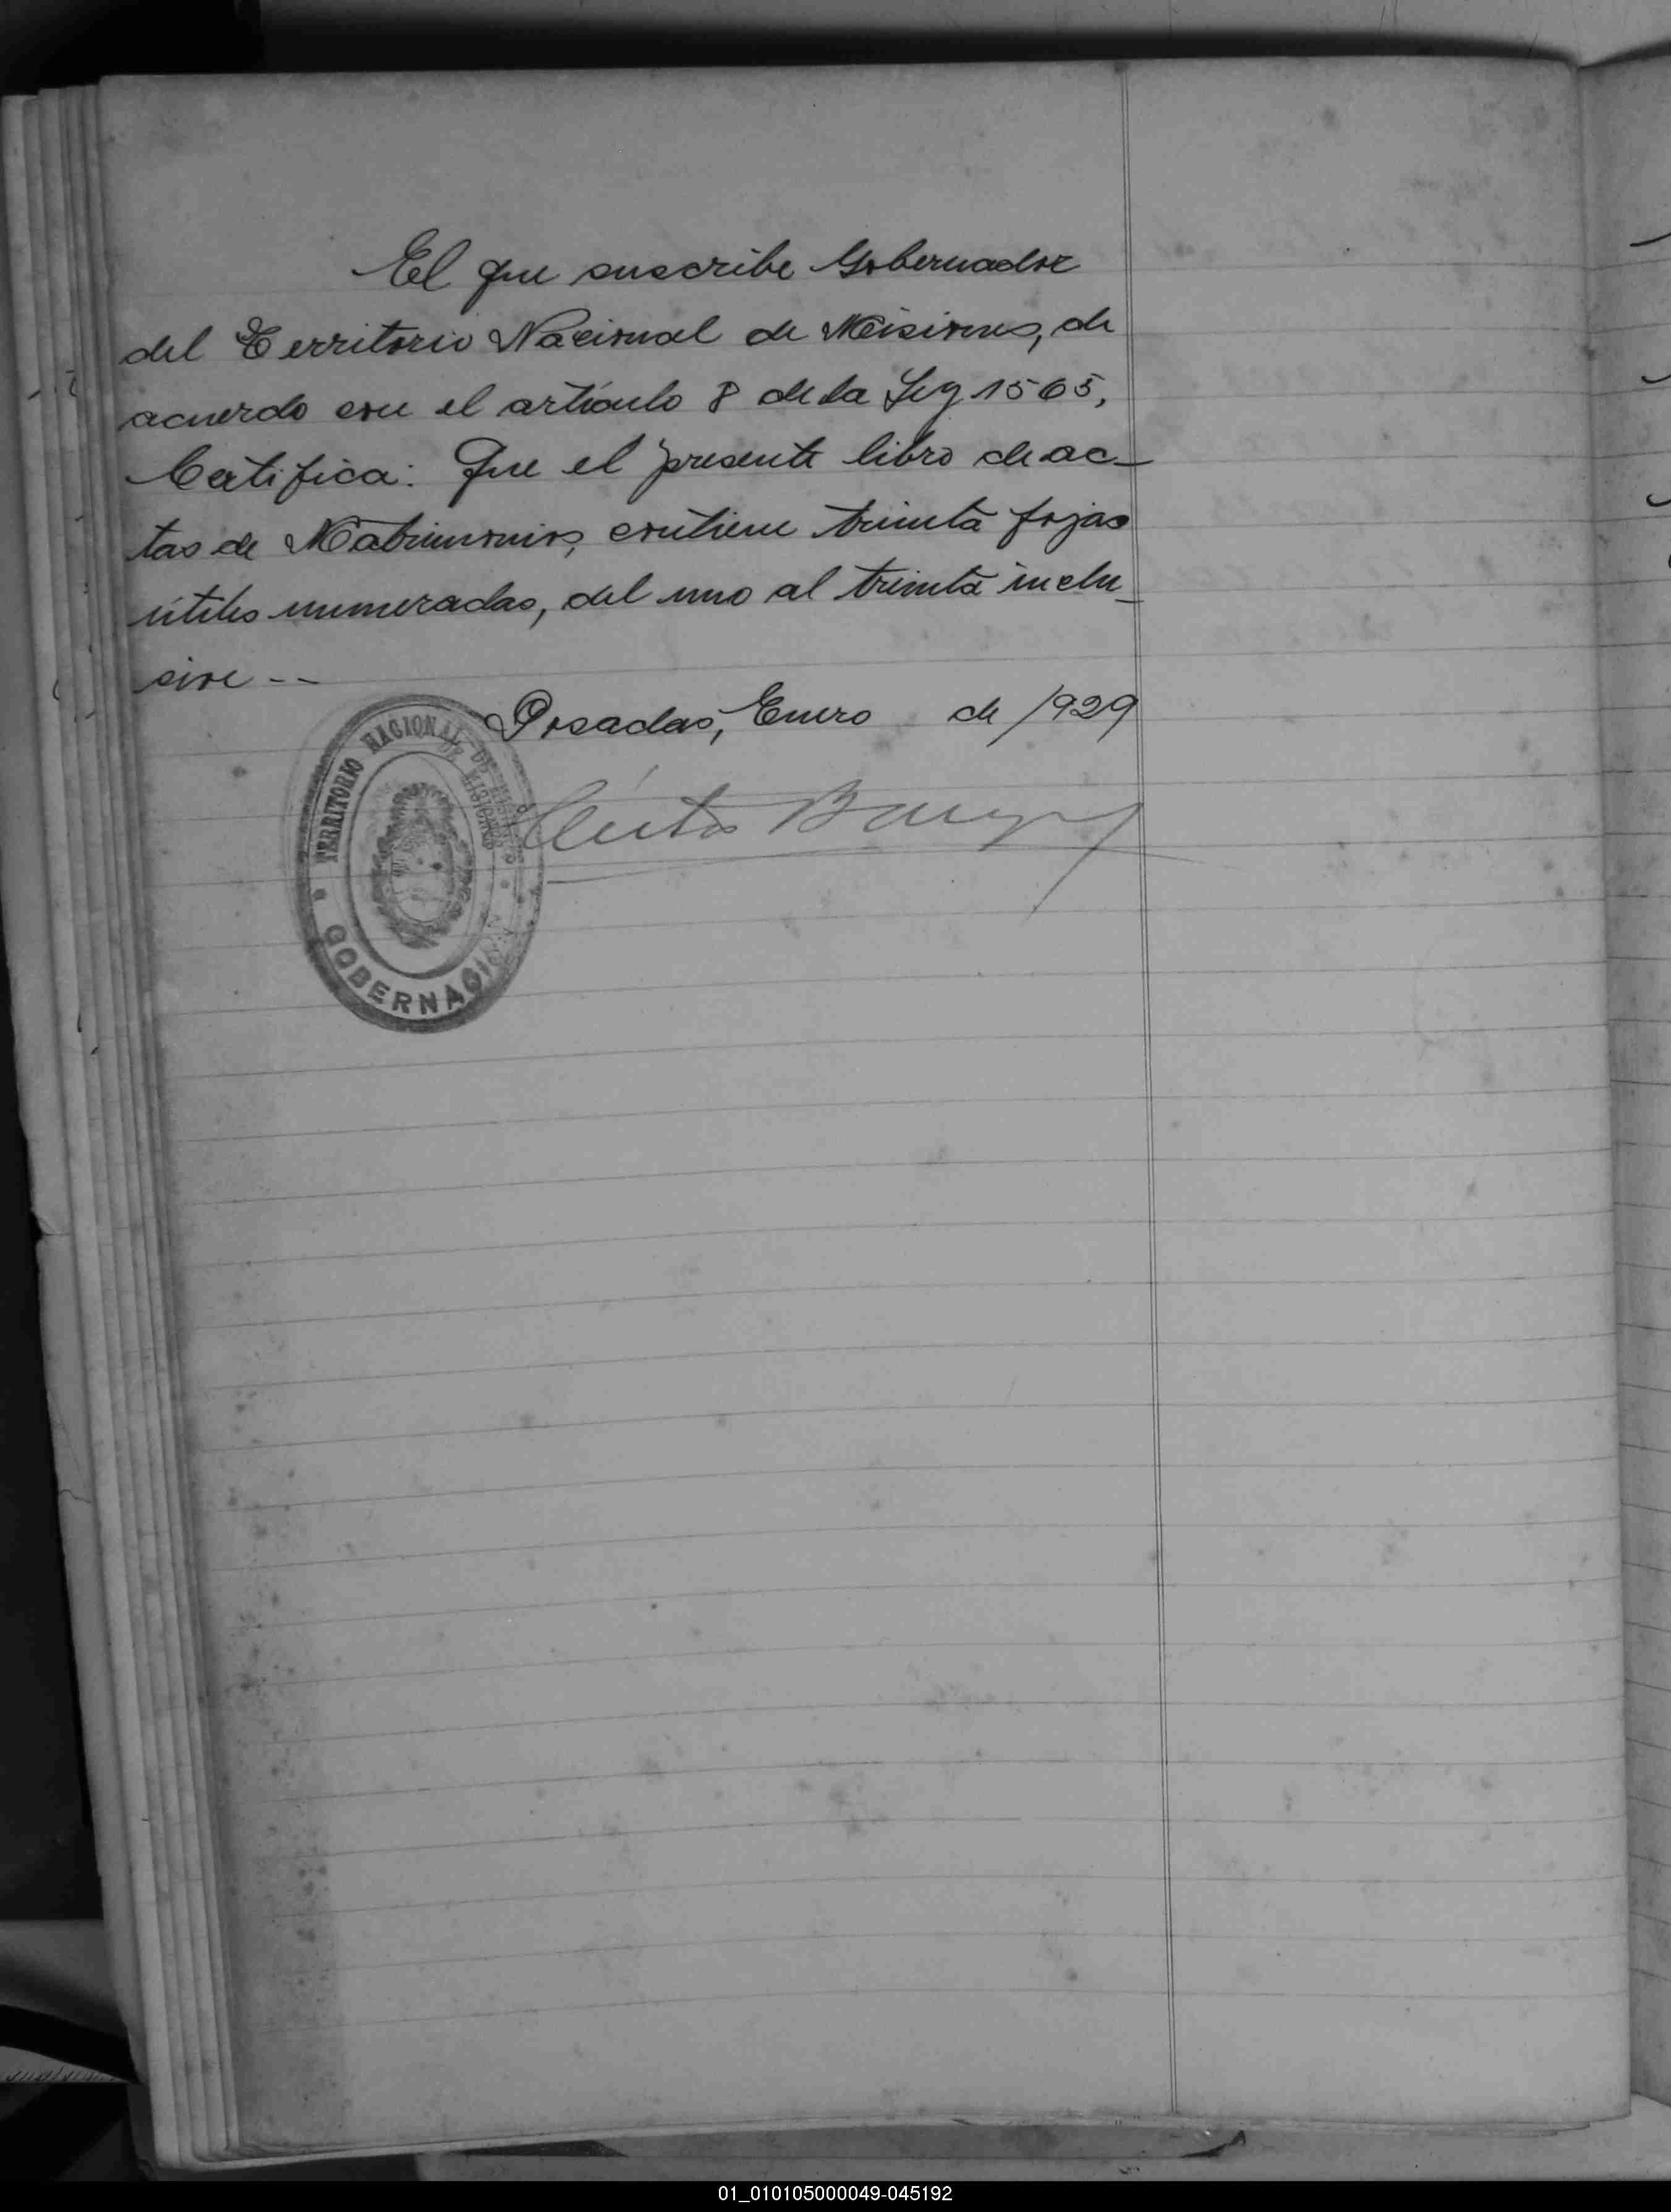 El que suscribe Gobernador
del Territorio Nacional de Misiones, de
acuerdo con el artículo 8 de la Ley 1565,
Certifica: Que el presente libro de ac-
tas de Matrimonios, contiene treinta fojas
útiles numeradas, del uno al treinta inclu-
sive --
Posadas, Enero de 1929
TERRITORIO NACIONAL DE MISIONES
GOBERNACION
01_010105000049-045192